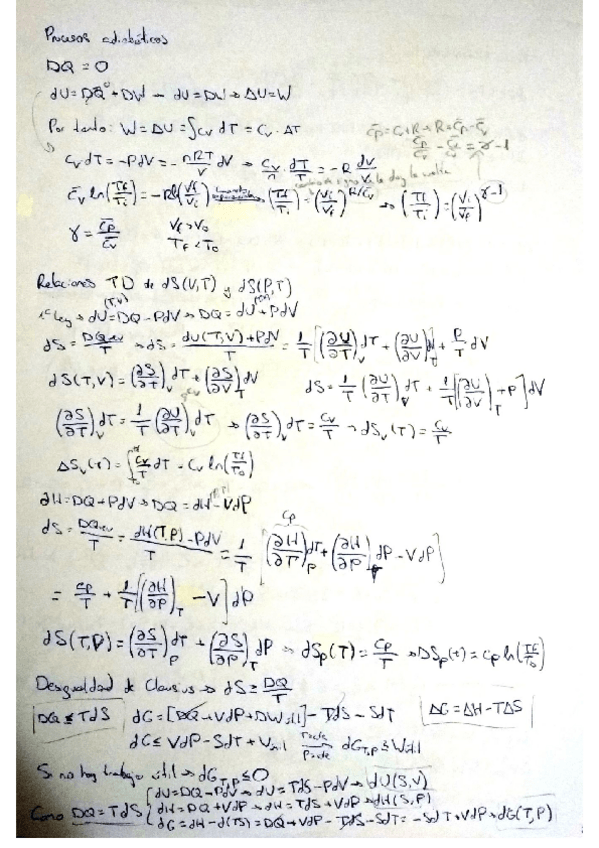 Procesos adiabáticos
DQ = 0
dU = DQ⁰ + DW → dU = DW → ΔU = W
Por tanto: W = ΔU = ∫Cv dT = Cv · ΔT
C̄p = C̄v + R → R = C̄p - C̄v
C̄p/C̄v - C̄v/C̄v = γ - 1
Cv dT = -PdV = - nRT/V dV → Cv/n · dT/T = -R dV/V
C̄v ln(Tf/Ti) = -R ln(Vf/Vi) → (Tf/Ti) = (Vi/Vf)^R/C̄v → (Tf/Ti) = (Vi/Vf)^γ-1
γ = C̄p/C̄v Vf > V0
Tf < T0
Relaciones TD de dS(V,T) y dS(P,T)
1ª Ley → dU = DQ - PdV → DQ = dU + PdV
dS = DQrev/T → dS = dU(T,V) + PdV / T = 1/T [(∂U/∂T)v dT + (∂U/∂V)T] + P/T dV
dS(T,V) = (∂S/∂T)v dT + (∂S/∂V)T dV dS = 1/T (∂U/∂T)v dT + 1/T [(∂U/∂V)T + P] dV
(∂S/∂T)v dT = 1/T (∂U/∂T)v dT → (∂S/∂T)v dT = Cv/T → dSv(T) = Cv/T
ΔSv(T) = ∫ Cv/T dT = Cv ln(Tf/T0)
dH = DQ + PdV → DQ = dH - VdP
dS = DQrev/T = dH(T,P) - PdV / T = 1/T [(∂H/∂T)P dT + (∂H/∂P)T dP - VdP]
Cp
= Cp/T + 1/T [(∂H/∂P)T - V] dP
dS(T,P) = (∂S/∂T)P dT + (∂S/∂P)T dP → dSp(T) = Cp/T → ΔSp(t) = Cp ln(Tf/T0)
Desigualdad de Clausius → dS ≥ DQ/T
DQ ≤ TdS dG = [DQ + VdP + DWútil] - TdS - SdT ΔG = ΔH - TΔS
dG ≤ VdP - SdT + Wútil → dG T,P ≤ Wútil
Si no hay trabajo útil → dG T,P ≤ 0
dU = DQ - PdV → dU = TdS - PdV → dU(S,V)
Como DQ = TdS { dH = DQ + VdP → dH = TdS + VdP → dH(S,P)
dG = dH - d(TS) = DQ + VdP - TdS - SdT = -SdT + VdP → dG(T,P)